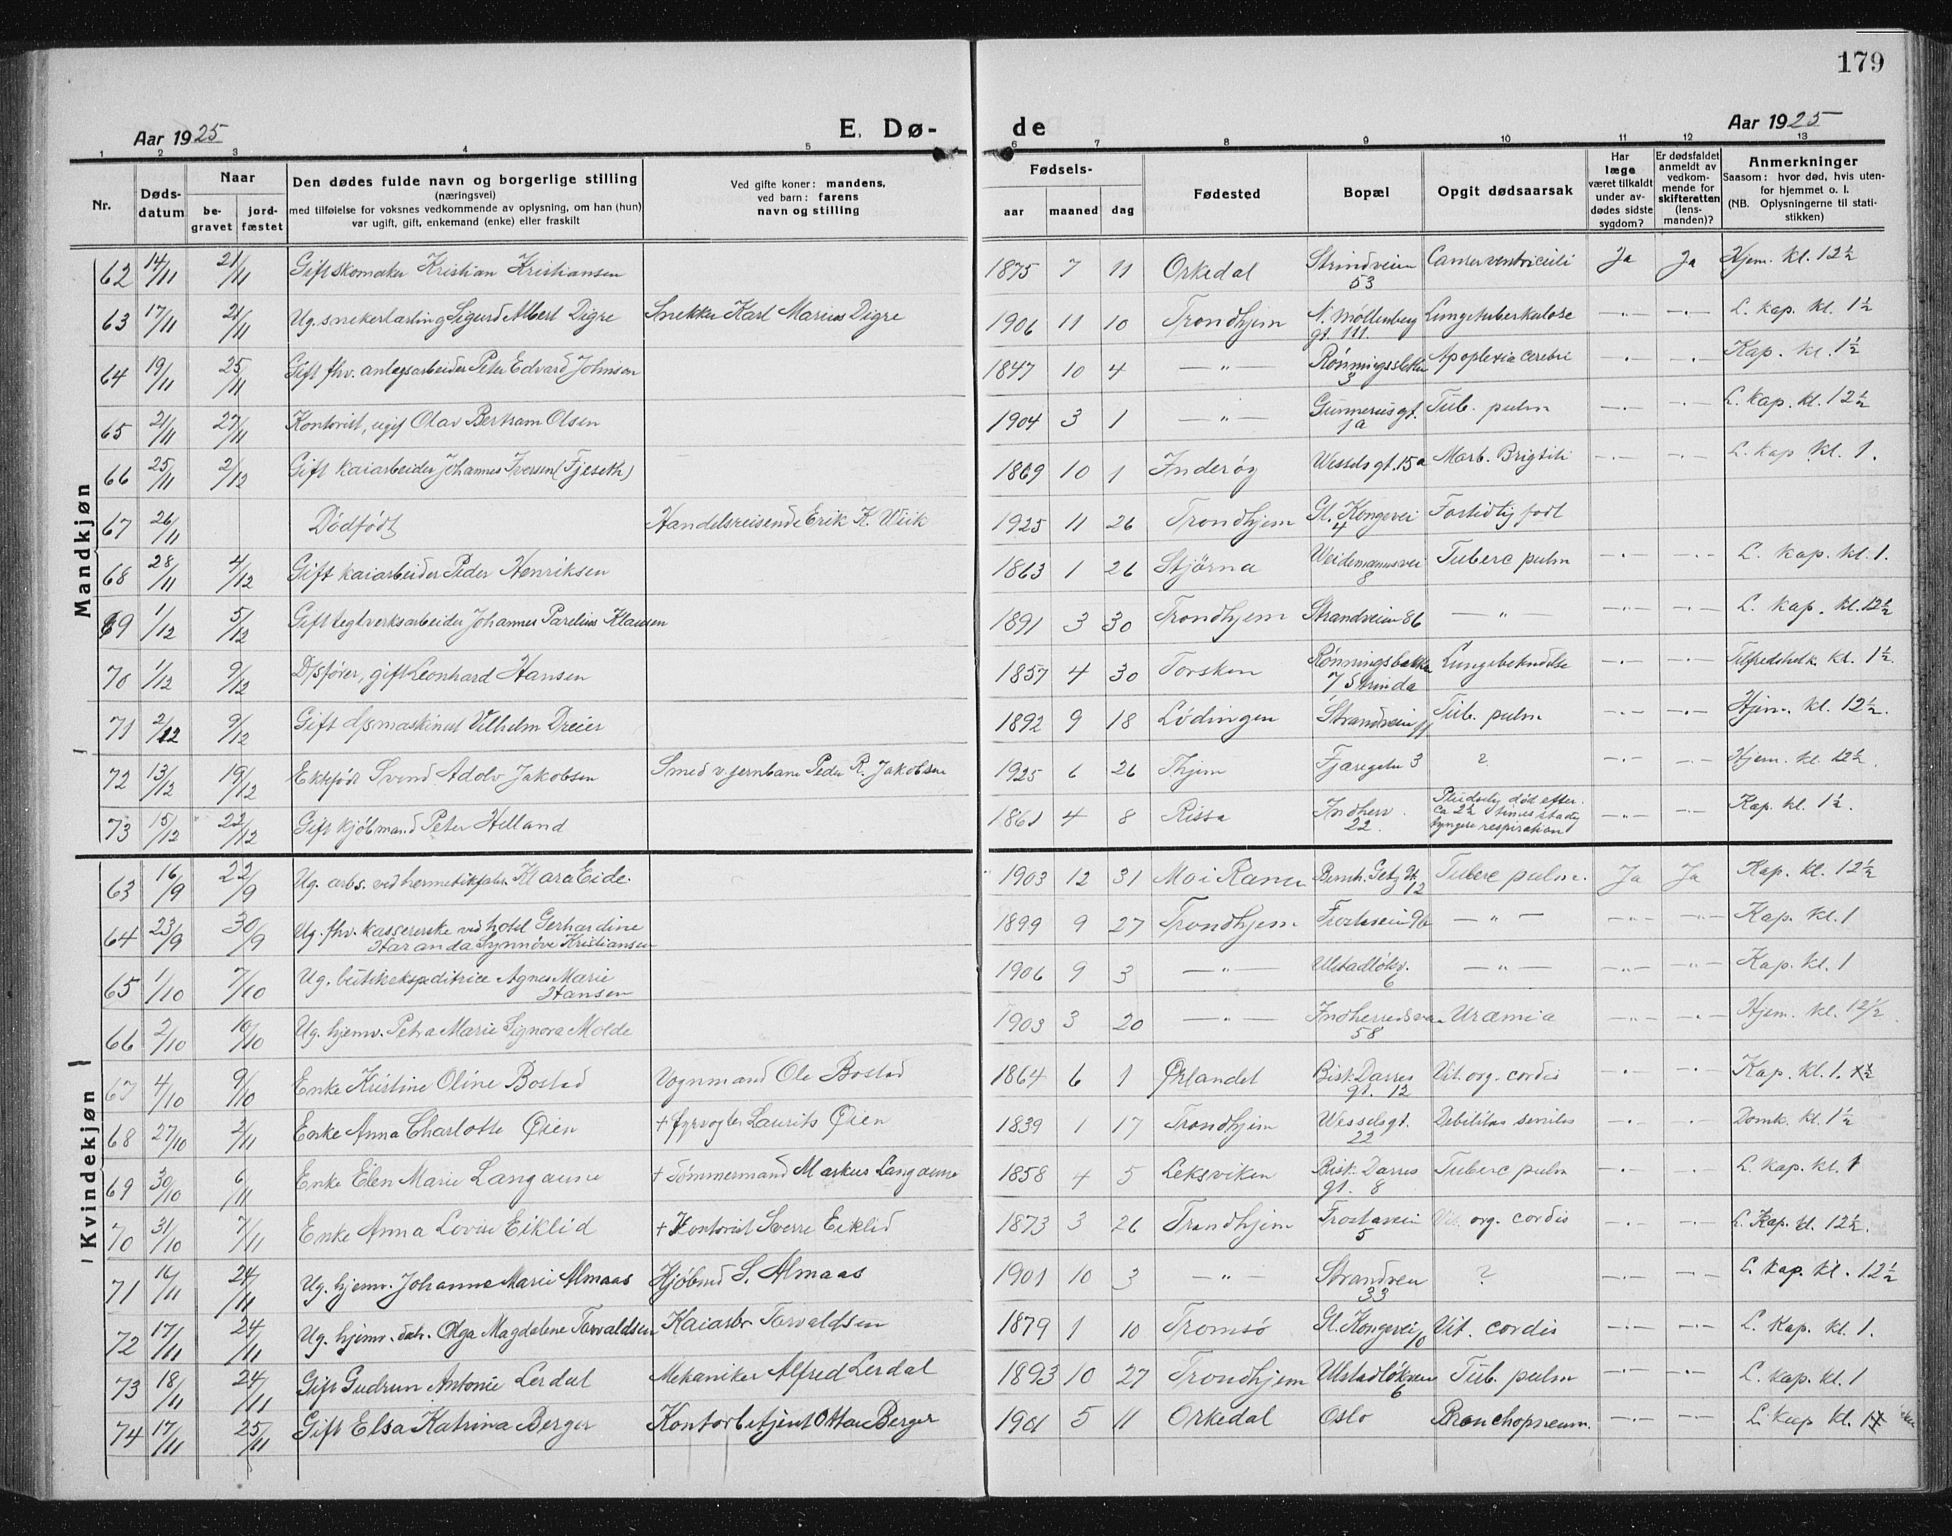 179
Aar 1925
E. Dø-
de
Aar 1925
1 2 3 4 5 6 7 8 9 10 11 12 13
Nr.
Døds-
datum
Naar
be-
gravet
jord-
fæstet
Den dødes fulde navn og borgerlige stilling
(næringsvei)
med tilføielse for voksnes vedkommende av oplysning, om han (hun)
var ugift, gift, enkemand (enke) eller fraskilt
Ved gifte koner: mandens,
ved barn: farens
navn og stilling
Fødsels-
aar maaned dag
Fødested
Bopæl
Opgit dødsaarsak
Har
læge
været tilkaldt
under av-
dødes sidste
sygdom?
Er dødsfaldet
anmeldt av
vedkom-
mende for
skifteretten
(lens-
manden)?
Anmerkninger
Saasom: hvor død, hvis uten-
for hjemmet o. l.
(NB. Oplysningerne til stati-
stikken)
Mandkjøn
62 14/11 21/11 Gift skomaker Kristian Kristiansen 1875 7 11 Orkedal Strindveien 53 Cancer ventriculi Ja Ja Hjem. kl. 12½
63 17/11 21/11 Ug. snekerlærling Sigurd Albert Digre Snekker Karl Marius Digre 1906 11 10 Trondhjem N. Møllenberg gt. 111. Lungetuberkulose —·— —·— L. kap. kl. 1½
64 19/11 25/11 Gift fhv. anlegsarbeider Peter Edvard Johnsen 1847 10 4 —"— 3 Apoplexia cerebri —·— —·— Kap. kl. 1½
65 21/11 27/11 Kontorist, ugif Olav Bertram Olsen 1904 3 1 —"— Gunnerusgt. 1a Tub. pulm —·— —·— L. kap. kl. 12½
66 25/11 2/12 Gift kaiarbeider Johannes Iversen (Fjeseth) 1869 10 1 Inderøy Wesselsgt. 15a Morb. Brigtii —·— —·— L. kap kl. 1.
67 26/11 Dødfødt Handelsreisende Erik K. Wiik 1925 11 26 Trondhjem Gl. Kongevei 4 Fortidlig født
68 28/11 4/12 Gift kaiarbeider Peder Henriksen 1863 1 26 Stjørna Weidemannsvei 8 Tuberc pulm —·— —·— L. kap. kl. 1.
69 1/12 5/12 Gift teglverksarbeider Johannes Parelius Klausen 1891 3 30 Trondhjem Strandveien 86 —"— —·— —·— L. kap. kl. 12½
70 1/12 9/12 D/s fører, gift Leonhard Hansen 1857 4 30 Torsken Rønningsbakke 7 Strinda Lungebetændelse —·— —·— Tilfredshet. kl. 1½.
71 2/12 9/12 Gift d/s maskinist Vilhelm Dreier 1892 9 18 Lødingen Strandveien 11 Tub. pulm —·— —·— Hjem. kl. 12½.
72 13/12 19/12 Ektefødt Svend Adolv Jakobsen Smed v. jernbane Peder R. Jakobsen 1925 6 26 Thjem Fjæregaten 3 ? —·— —·— Hjem. kl. 12½.
73 15/12 22/12 Gift kjøbmand Peter Helland 1861 4 8 Rissa Indherr. 22. Pludselig død efter ca 2½ times stadig tyngere respiration —·— —·— Kap. kl. 1½.
Kvindekjøn
63 16/9 22/9 Ug. arb. ved hermetikfabr. Klara Eide. 1903 12 31 Mo i Rana Bernh. Getz gt 12 Tuberc pulm. Ja Ja Kap. kl. 12½
64 23/9 30/9 Ug. fhv. kassererske ved hotel Gerhardine Haranda Synnøve Kristiansen 1899 9 27 Trondhjem Frostaveien 9b —"— —·— —·— Kap. kl. 1
65 1/10 7/10 Ug. butikekspeditrice Agnes Marie Hansen 1906 9 3 —"— Ulstadløkv. 6 —"— —·— —·— Kap. kl. 1
66 2/10 10/10 Ug. hjemv. Petra Marie Signora Molde 1903 3 20 —"— Indherredsvei 58 Uræmia —·— —·— Hjem. kl. 12½
67 4/10 9/10 Enke Kristine Oline Bostad Vognmand Ole Bostad 1864 6 1 Ørlandet Bisk. Darres gt. 12 Vit. org. cordis —·— —·— Kap. kl. 1.
68 27/10 2/11 Enke Anna Charlotte Øien + fyrvogter Laurits Øien 1839 1 17 Trondhjem Wesselsgt. 22 Debilitas senilis —·— —·— Domk. kl. 1½
69 30/10 6/11 Enke Elen Marie Langaune + Tømmermand Markus Langaune 1858 4 5 Leksviken Bisk. Darres gt. 8 Tuberc pulm —·— —·— L. kap. kl. 1
70 31/10 7/11 Enke Anna Lovise Eiklid + Kontorist Sverre Eiklid 1873 3 26 Trondhjem Frostavei 5 Vit. org. cordis —·— —·— L. Kap. kl. 12½.
71 16/11 24/11 Ug. hjemv. Johanne Marie Almaas Kjøbmd S. Almaas 1901 10 3 —"— Strandvei 33 ? —·— —·— L. kap. kl. 12½
72 17/11 24/11 Ug. hjemv. dat. Olga Magdalene Torvaldsen Kaiarbr Torvaldsen 1879 1 10 Tromsø Gl. Kongevei 10 Vit. cordis —·— —·— L. Kap. kl. 1.
73 18/11 24/11 Gift Gudrun Antonie Lerdal Mekaniker Alfred Lerdal 1893 10 27 Trondhjem Ulstadløkven 6 Tub. pulm —·— —·— L. kap. kl. 1
74 17/11 25/11 Gift Elsa Katrina Berger Kontorbetjent Ottar Berger 1901 5 11 Orkedal Oslo Bronchopneum. —·— —·— L. kap kl.